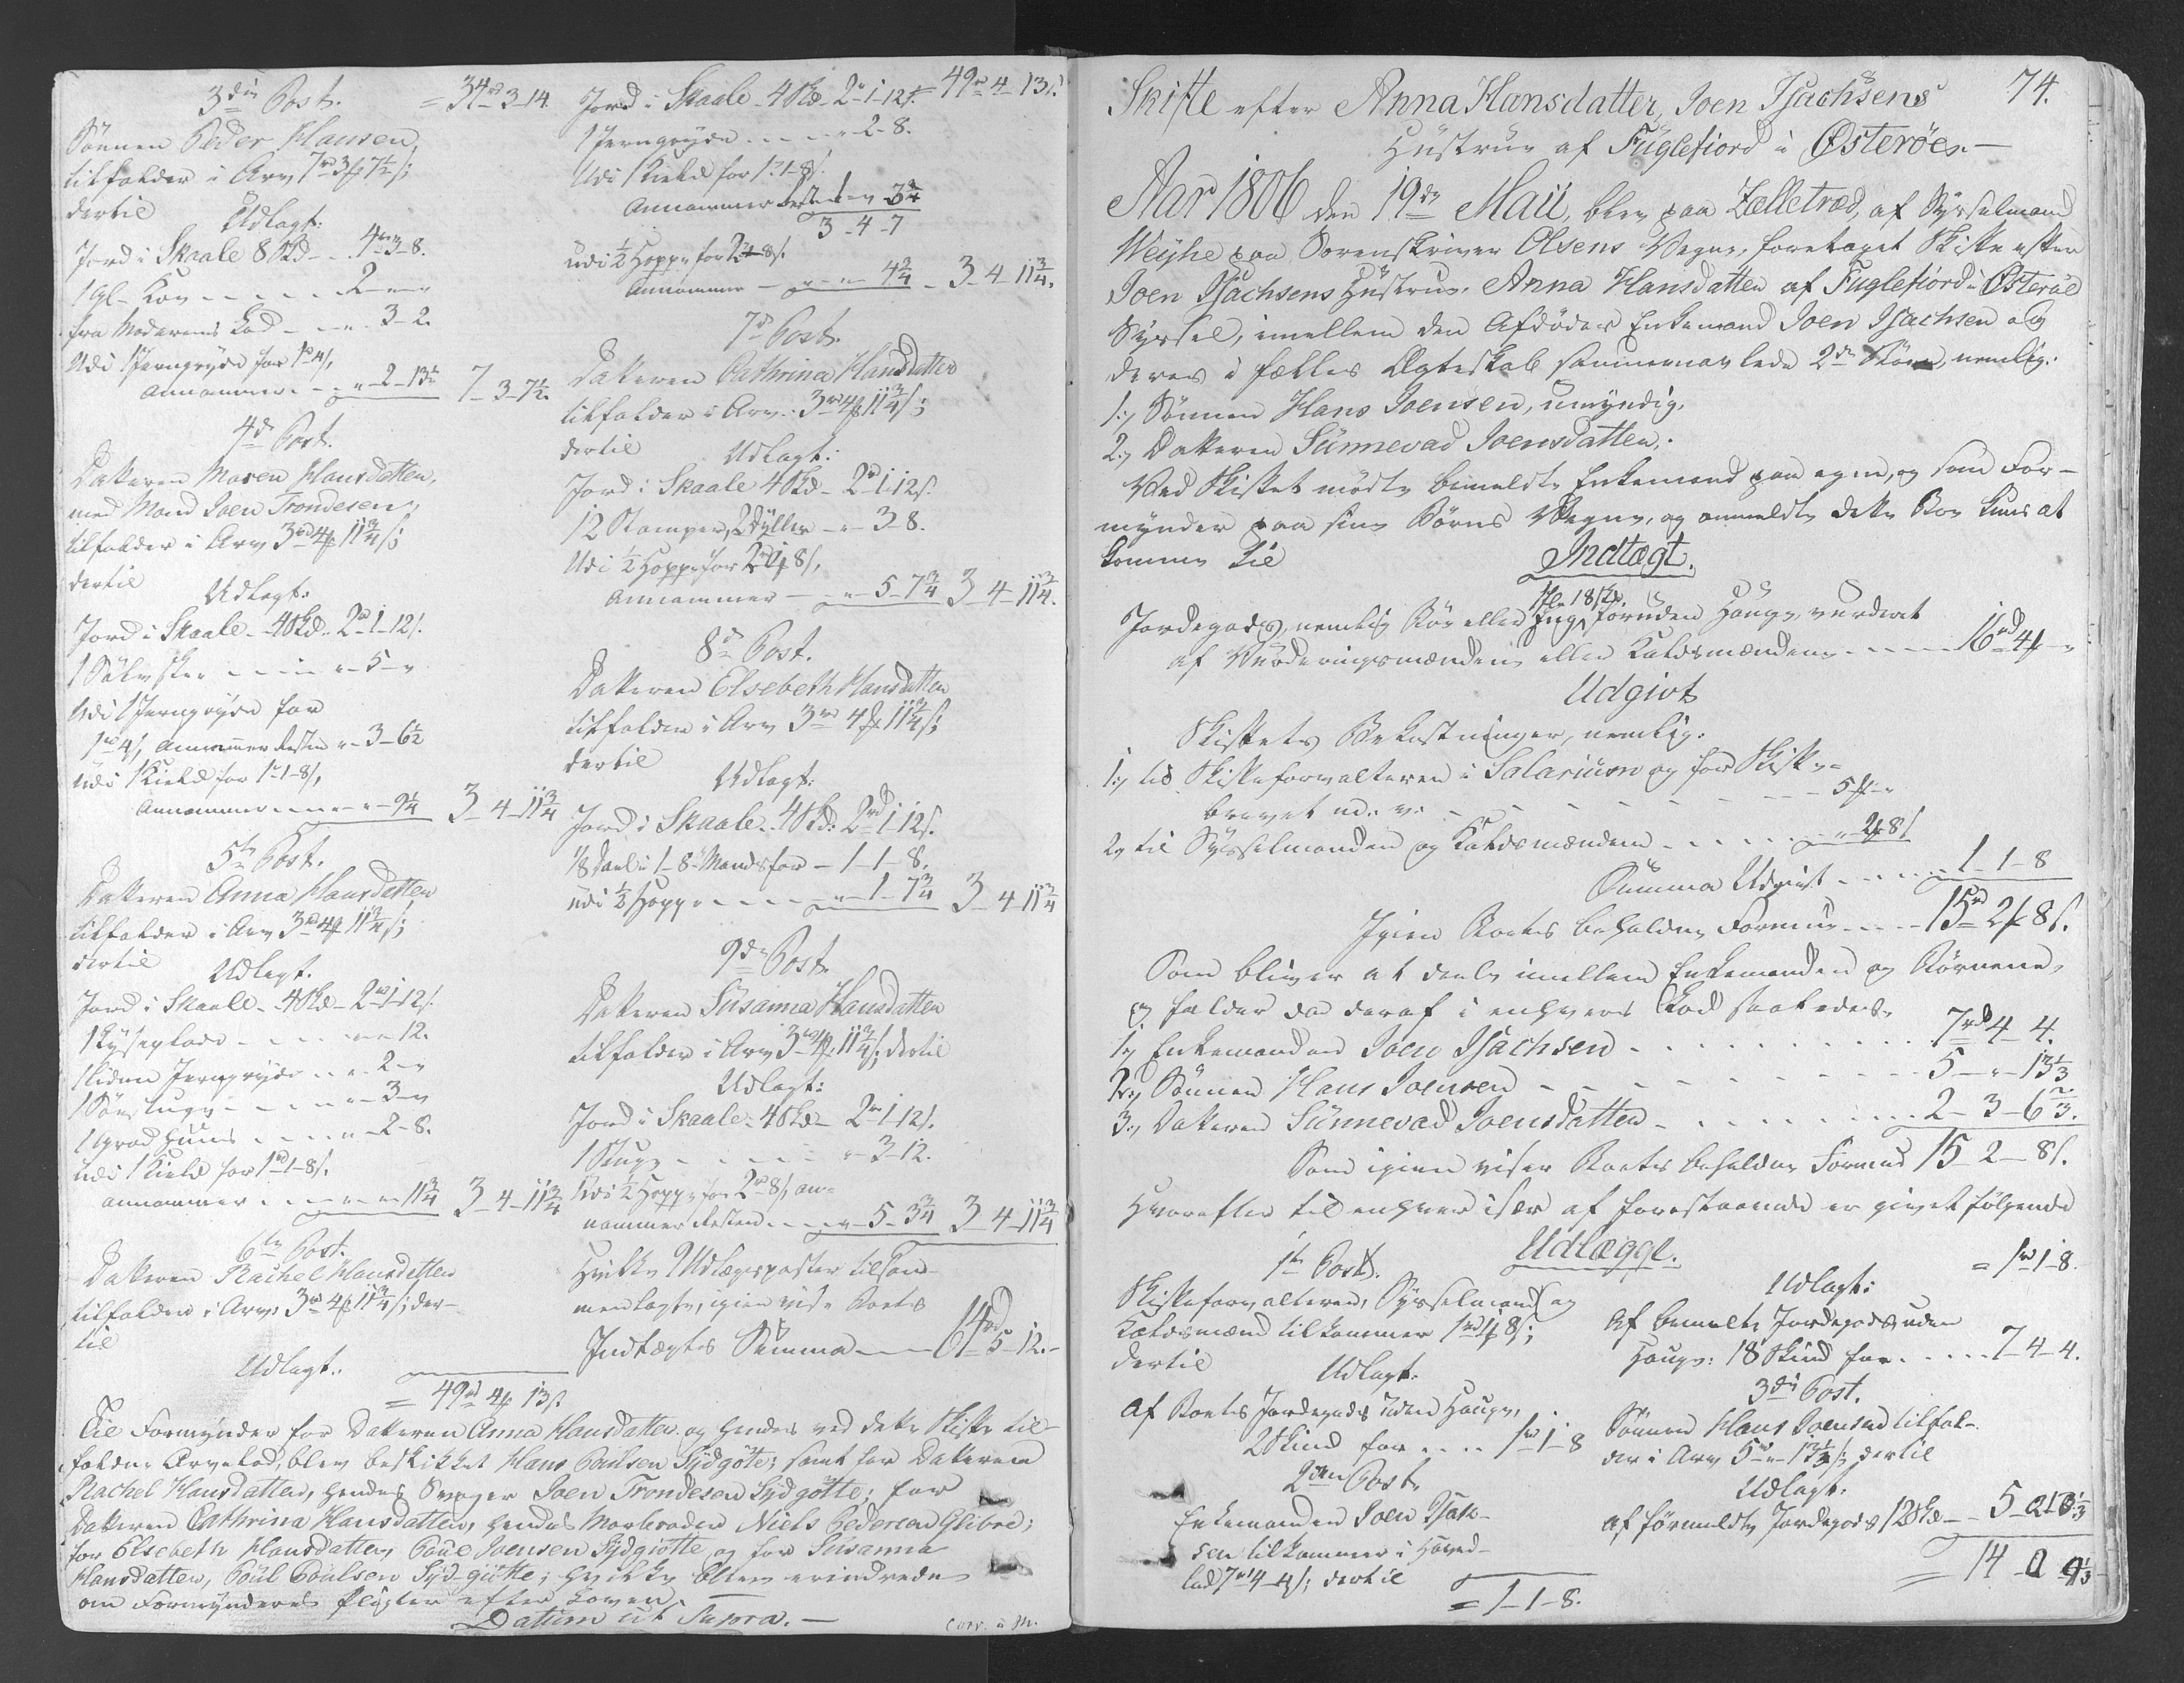 3die Post. = 34rd 3-14.
Sönnen Peder Hansen,
tilfalder i Arv 7rd 3f 7½ s;
dertil
Udlagt:
Jord i Skaale 8 Skd - - 4rd 3-8.
1 gl. Koe - - - - - 2 - " - "
fra Moderens Lod - - " - 3-2.
Udi 1 Jerngryde for 1rd 4f,
annammer - - - " - 2-13½ 7-3-7½.
4de Post.
Datteren Maren Hansdatter,
med Mand Joen Trondesen,
tilfalder i Arv 3rd 4f 11¾ s;
dertil
Udlagt:
Jord i Skaale - 4 Skd. - 2rd 1-12 s.
1 Sölvskee - - - - " - 5 - "
Udi 1 Jerngryde for
1rd 4f, annammer Resten " - 3-6½
Udi 1 Kield for 1rd 1-8 s,
annammer - - - - " - " - 9¼ 3-4-11¾
5te Post.
Datteren Anna Hansdatter
tilfalder i Arv 3rd 4f 11¾ s;
dertil
Udlagt.
Jord i Skaale - 4 Skd - 2rd 1-12 s.
1 Lyseplade - - - - " - " - 12.
1 liden Jerngryde - - " - 2 - "
- - - - " - 3 - "
- - - - " - 2-8.
Udi 1 Kield for 1rd 1-8 s.
annammer - - - - " - " - 11¾ 3-4-11¾
6te Post.
Datteren Rachel Hansdatter
tilfalder i Arv: 3rd 4f 11¾ s; der-
til
Udlagt:
= 49rd 4f 13 s.
Jord i Skaale - 4 Skd - 2rd 1-12 s. = 49rd 4-13 s.
1 Jerngryde - - - - " - 2-8.
Udi 1 Kield for 1rd 1-8 s.
annammer Resten " - " - 3¾
3-4-7
udi ½ Hoppe for 2rd 4-8 s.
annammer - - " - " - 4¾ - 3-4-11¾.
7de Post.
Datteren Cathrina Hansdatter
tilfalder i Arv: 3rd 4f 11¾ s;
dertil
Udlagt:
Jord i Skaale 4 Skd - 2rd 1-12 s.
12 Stamper, 2 Bylter - " - 3-8.
Udi ½ Hoppe for 2rd 4f 8 s,
annammer - - " - 5-7¾ 3-4-11¾.
8de Post.
Datteren Elsebeth Hansdatter
tilfalder i Arv 3rd 4f 11¾ s;
dertil
Udlagt:
Jord i Skaale - 4 Skd: 2rd 1-12 s.
⅛ Deel i 1-8-Mandsfar - 1-1-8.
udi ½ Hoppe - - - - " - 1-7¾ 3-4-11¾
9de Post.
Datteren Susanna Hansdatter
tilfalder i Arv 3rd 4f: 11¾ s; dertil
Udlagt:
Jord i Skaale - 4 Skd - 2rd 1-12 s.
- - - - - " - 3-12.
Udi ½ Hoppe for 2rd 8 s, an-
nammer Resten - - - " - 5-3¾ 3-4-11¾
Hvilke 9 Udlægsposter tilsam-
menlagte, igien viser Boets
Indtægts Summa - - - 61rd 5-12.-
Til Formynder for Datteren Anna Hansdatter og hendes ved dette Skifte til-
faldne Arvelod, blev beskikket Hans Poulsen Sydgöte; samt for Datteren
Rachel Hansdatter, hendes Svoger Joen Trondesen Sydgötte; for
Datteren Cathrina Hansdatter, hendes Morbroder Niels Pedersen Glibre;
for Elsebeth Hansdatter, Poul Joensen Sydgiötte og for Susanna
Hansdatter, Poul Poulsen Sydgiötte; hvilke bleve erindrede
om Formynderes Pligter efter Loven.
Datum ut Supra. -
Corr. à M.
74.
Skifte efter Anna Hansdatter, Joen Isachsens
Hustrue af Fuglefiord i Österöe. -
Aar 1806 den 19de Maii, blev paa Zelletræd, af Sysselmand
Weyhe paa Sorenskriver Olsens Vegne, foretaget Skifte efter
Joen Isachsens Hustrue Anna Hansdatter af Fuglefiord i Österöe
Syssel, imellem den Afdödes Enkemand Joen Isachsen og
deres i fælles Ægteskab sammenavlede 2de Börn, nemlig:
1:, Sönnen Hans Joensen, umyndig.
2:, Datteren Sünnevad Joensdatter.
Ved Skiftet mödte bemeldte Enkemand paa egne, og som For-
mynder paa sine Börns Vegne, og anmeldte dette Boe kuns at
komme til
Indtægt.
Jordegods, nemlig foruden Houge, vurderet
af Vurderingsmændene eller Laldsmændene - - - - 16rd 4f - "
Udgivt
Skiftets Bekostninger, nemlig:
1:, til Skifteforvalteren i Salarium og for Skifte-
brevet m. v. - - - - - - - - 5f - "
2, til Sysselmanden og Laldsmændene - - - - - " - 2f 8 s
Summa Udgivt - - - - 1-1-8
Igien Boets beholdne Formue - - - - 15rd 2f 8 s.
Som bliver at deele imellem Enkemanden og Börnene,
og falder da deraf i enhvers Lod saaledes.
1, Enkemanden Joen Isachsen - - - - - - - - 7rd 4-4.
2:, Sönnen Hans Joensen - - - - - - - - 5 - " - 13⅓
3:, Datteren Sünnevad Joensdatter - - - - - - 2-3-6⅔.
Som igien viser Boets beholdne Formue 15-2-8 s.
Hvorefter til enhver især af forestaaende er givet fölgende
Udlægge.
1te Post.
Skifteforvalteren, Sysselmand og
Laldsmænd tilkommer 1rd 1f 8 s;
dertil
Udlagt.
Af Boets Jordegods uden Houge,
2 Skind for - - - - 1rd 1-8
2den Post.
Enkemanden Joen Isach-
sen tilkommer i Hoved-
lod 7rd 4-4 s; dertil
= 1-1-8.
= 1rd 1-8.
Udlagt:
Af bemeldte Jordegods uden
Houge: 18 Skind for - - - - 7-4-4.
3die Post.
Sönnen Hans Joensen tilfal-
der i Arv 5rd " - 13⅓ s; dertil
Udlagt.
af formeldte Jordegods 12 Skd - - 5
= 14